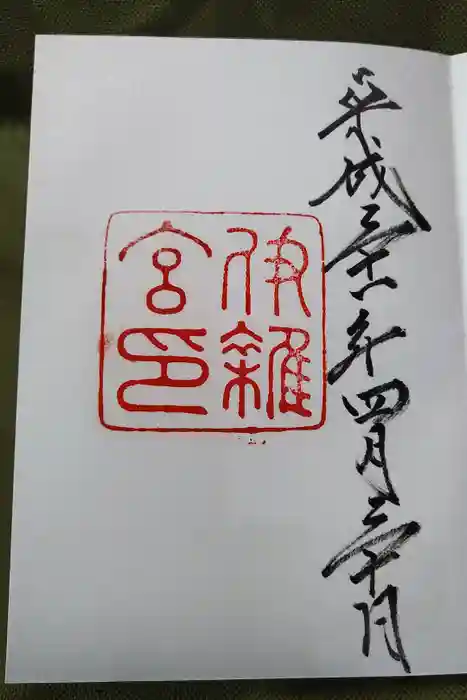 平成二十八年四月三十日
伊雜
宮印